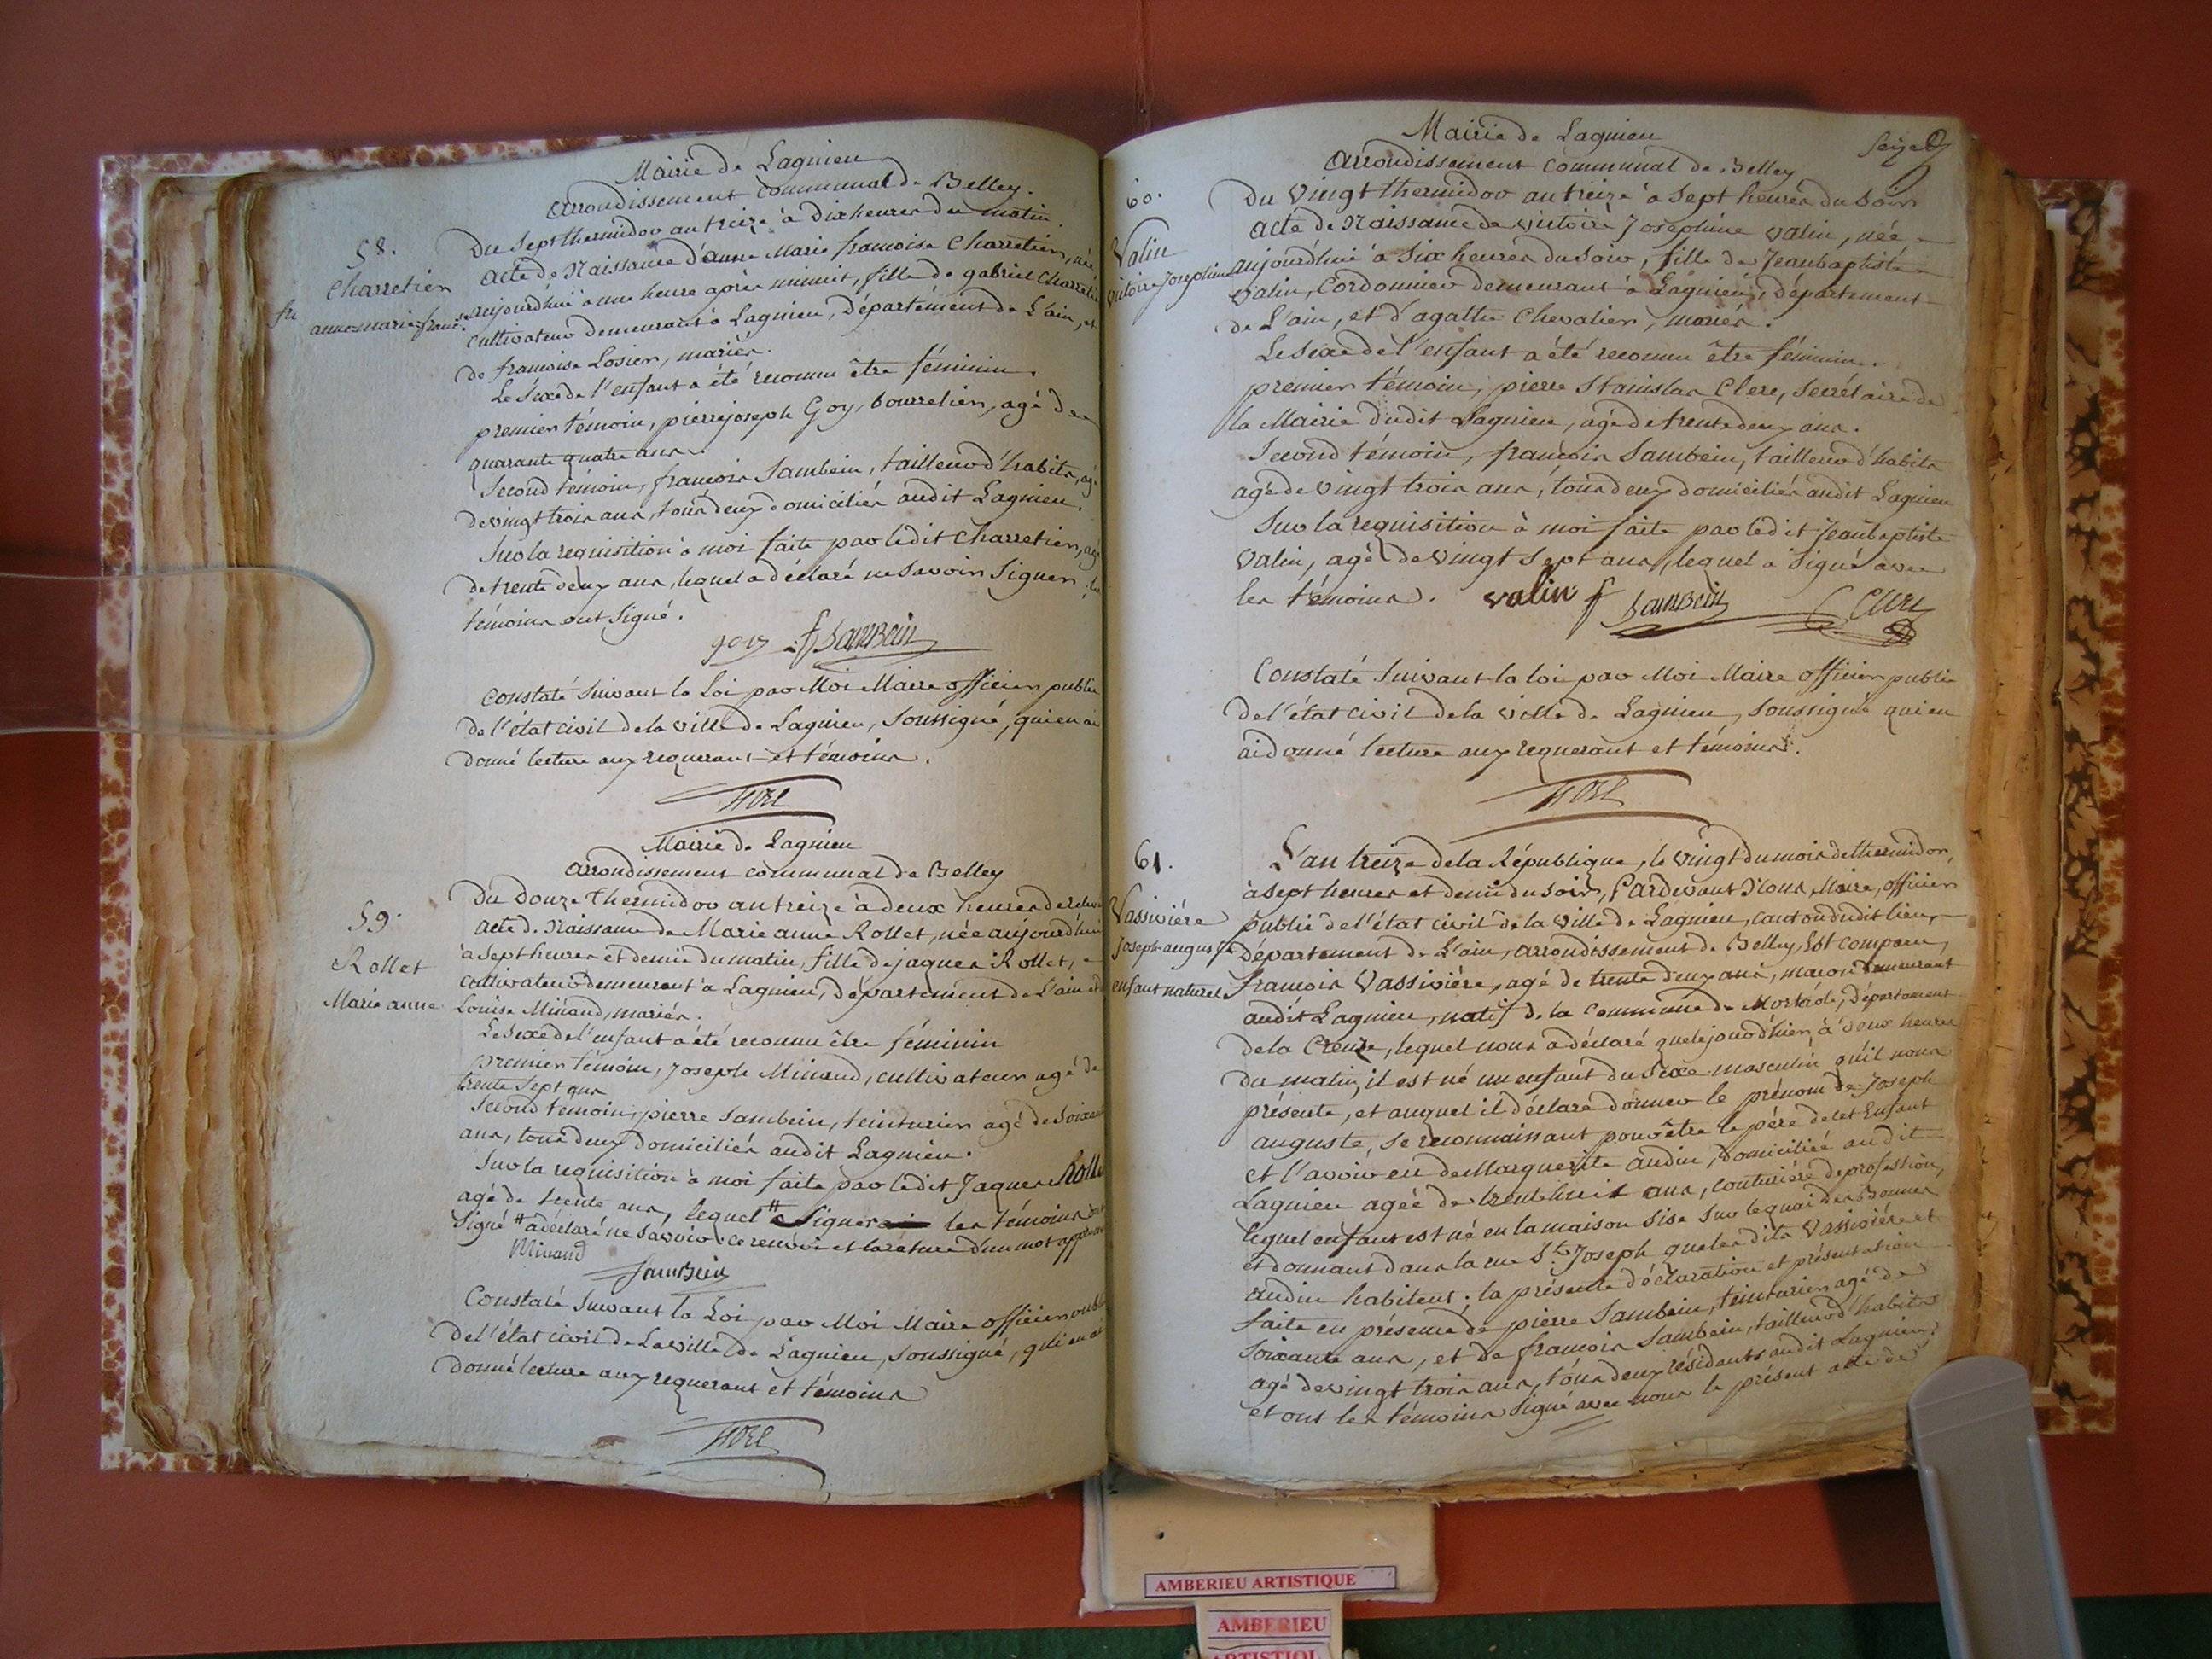 Mairie de Lagnieu
arrondissement communal de Belley.
58.
Charretien
anne-marie-franc.se
Du Sept thermidor an treize à Dix heures du matin
acte de Naissance d'anne Marie francoise Charretien, née
aujourd'hui à une heure après minuit, fille de gabriel Charretien
cultivateur demeurant à Lagnieu, Département de L'ain, et
de francoise Losier, mariés.
Le Sexe de l'enfant a été reconnu être féminin.
premier témoin, pierre joseph Goy, bourrelier, agé de
quarante quatre ans.
Second témoin, francois Sambein, tailleur d'habits, agé
de vingt trois ans, tous deux domiciliés audit Lagnieu.
Sur la requisition à moi faite par ledit Charretien, agé
de trente deux ans, lequel a déclaré ne Savoir Signer, les
témoins ont Signé.
goy f SamBein
Constaté Suivant la Loi par Moi Maire officier public
de l'état civil de la ville de Lagnieu, Soussigné, qui en ai
donné lecture aux requerant et témoins.
Mairie de Lagnieu
arrondissement communal de Belley
59.
Rollet
Marie anne
Du Douze Thermidor an treize à deux heures de relevée
acte de Naissance de Marie anne Rollet, née aujourd'hui
à Sept heures et demie du matin, fille de jaques Rollet,
cultivateur demeurant à Lagnieu, Département de L'ain et de
Louise Minand, mariés.
Le Sexe de l'enfant a été reconnu être féminin
premier témoin, Joseph Minand, cultivateur agé de
trente Sept ans
Second témoin, pierre Sambein, teinturier agé de Soixante
ans, tous deux domiciliés audit Lagnieu.
Sur la requisition à moi faite par ledit Jaques Rollet
agé de trente ans, lequel # Signer les témoins ont
Signé # a déclaré ne Savoir. ce renvoi et la rature d'un mot approuvés
Minand
SamBein
Constaté Suivant la Loi par Moi Maire officier public
de l'état civil de La ville de Lagnieu, Soussigné, qui en ai
donné lecture aux requerant et témoins
Seize
Mairie de Lagnieu
arrondissement communal de Belley
60.
Valin
Victoire Josephine
Du Vingt thermidor an treize à Sept heures du Soir
acte de Naissance de Victoire Josephine Valin, née
aujourd'hui à Six heures du Soir, fille de Jean baptiste
Valin, Cordonnier demeurant à Lagnieu, Département
de L'ain, et d'agathe Chevalier, mariés.
Le Sexe de l'enfant a été reconnu être féminin.
premier témoin, pierre Stanislas Clerc, Secretaire de
la Mairie dudit Lagnieu, agé de trente deux ans.
Second témoin, francois Sambein, tailleur d'habits
agé de Vingt trois ans, tous deux domiciliés audit Lagnieu
Sur la requisition à moi faite par ledit Jean baptiste
Valin, agé de vingt Sept ans, lequel a Signé avec
les témoins.
valin f SamBein Clerc
Constaté Suivant la loi par Moi Maire officier public
de l'état civil de la ville de Lagnieu, Soussigné qui en
ai donné lecture aux requerant et témoins.
61.
Vassivière
Joseph auguste
enfant naturel
L'an treize de la République, le Vingt du mois de thermidor,
à Sept heures et demie du Soir, Pardevant Nous, Maire, officier
public de l'état civil de la ville de Lagnieu, canton dudit lieu,
Département de L'ain, arrondissement de Belley, Est comparu,
francois Vassivière, agé de trente deux ans, macon demeurant
audit Lagnieu, natif de la commune de Mortérole, Département
de la Creuze, lequel nous a déclaré que le jour d'hier, à deux heures
du matin, il est né un enfant du Sexe masculin qu'il nous
présente, et auquel il déclare donner le prénom de Joseph
auguste, se reconnaissant pour être le père de cet Enfant
et l'avoir eu de Marguerite audin, domiciliée audit
Lagnieu agée de trente huit ans, couturière de profession,
lequel enfant est né en la maison sise Sur le quai des
et donnant dans la rue St. Joseph que lesdits Vassivière et
audin habitent; la présente déclaration et présentation
faite en présence de pierre Sambein, teinturier agé de
Soixante ans, et de francois Sambein, tailleur d'habits
agé de vingt trois ans, tous deux résidants audit Lagnieu;
et ont les témoins Signé avec nous le présent acte de
AMBERIEU ARTISTIQUE
AMBERIEU